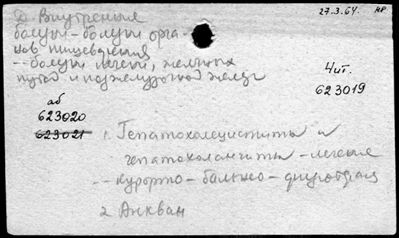 27.3.64. НР
Д Внутренние
болезни - болезни орга-
нов пищеварения
-- болезни печени, желчных
путей и поджелудочной железы
Чит.
623019
аб
623020
623021
1. Гепатохолециститы и
гепатохолангиты - лечение
-- курорто - бальнео - физиотерапия
2 Анкван